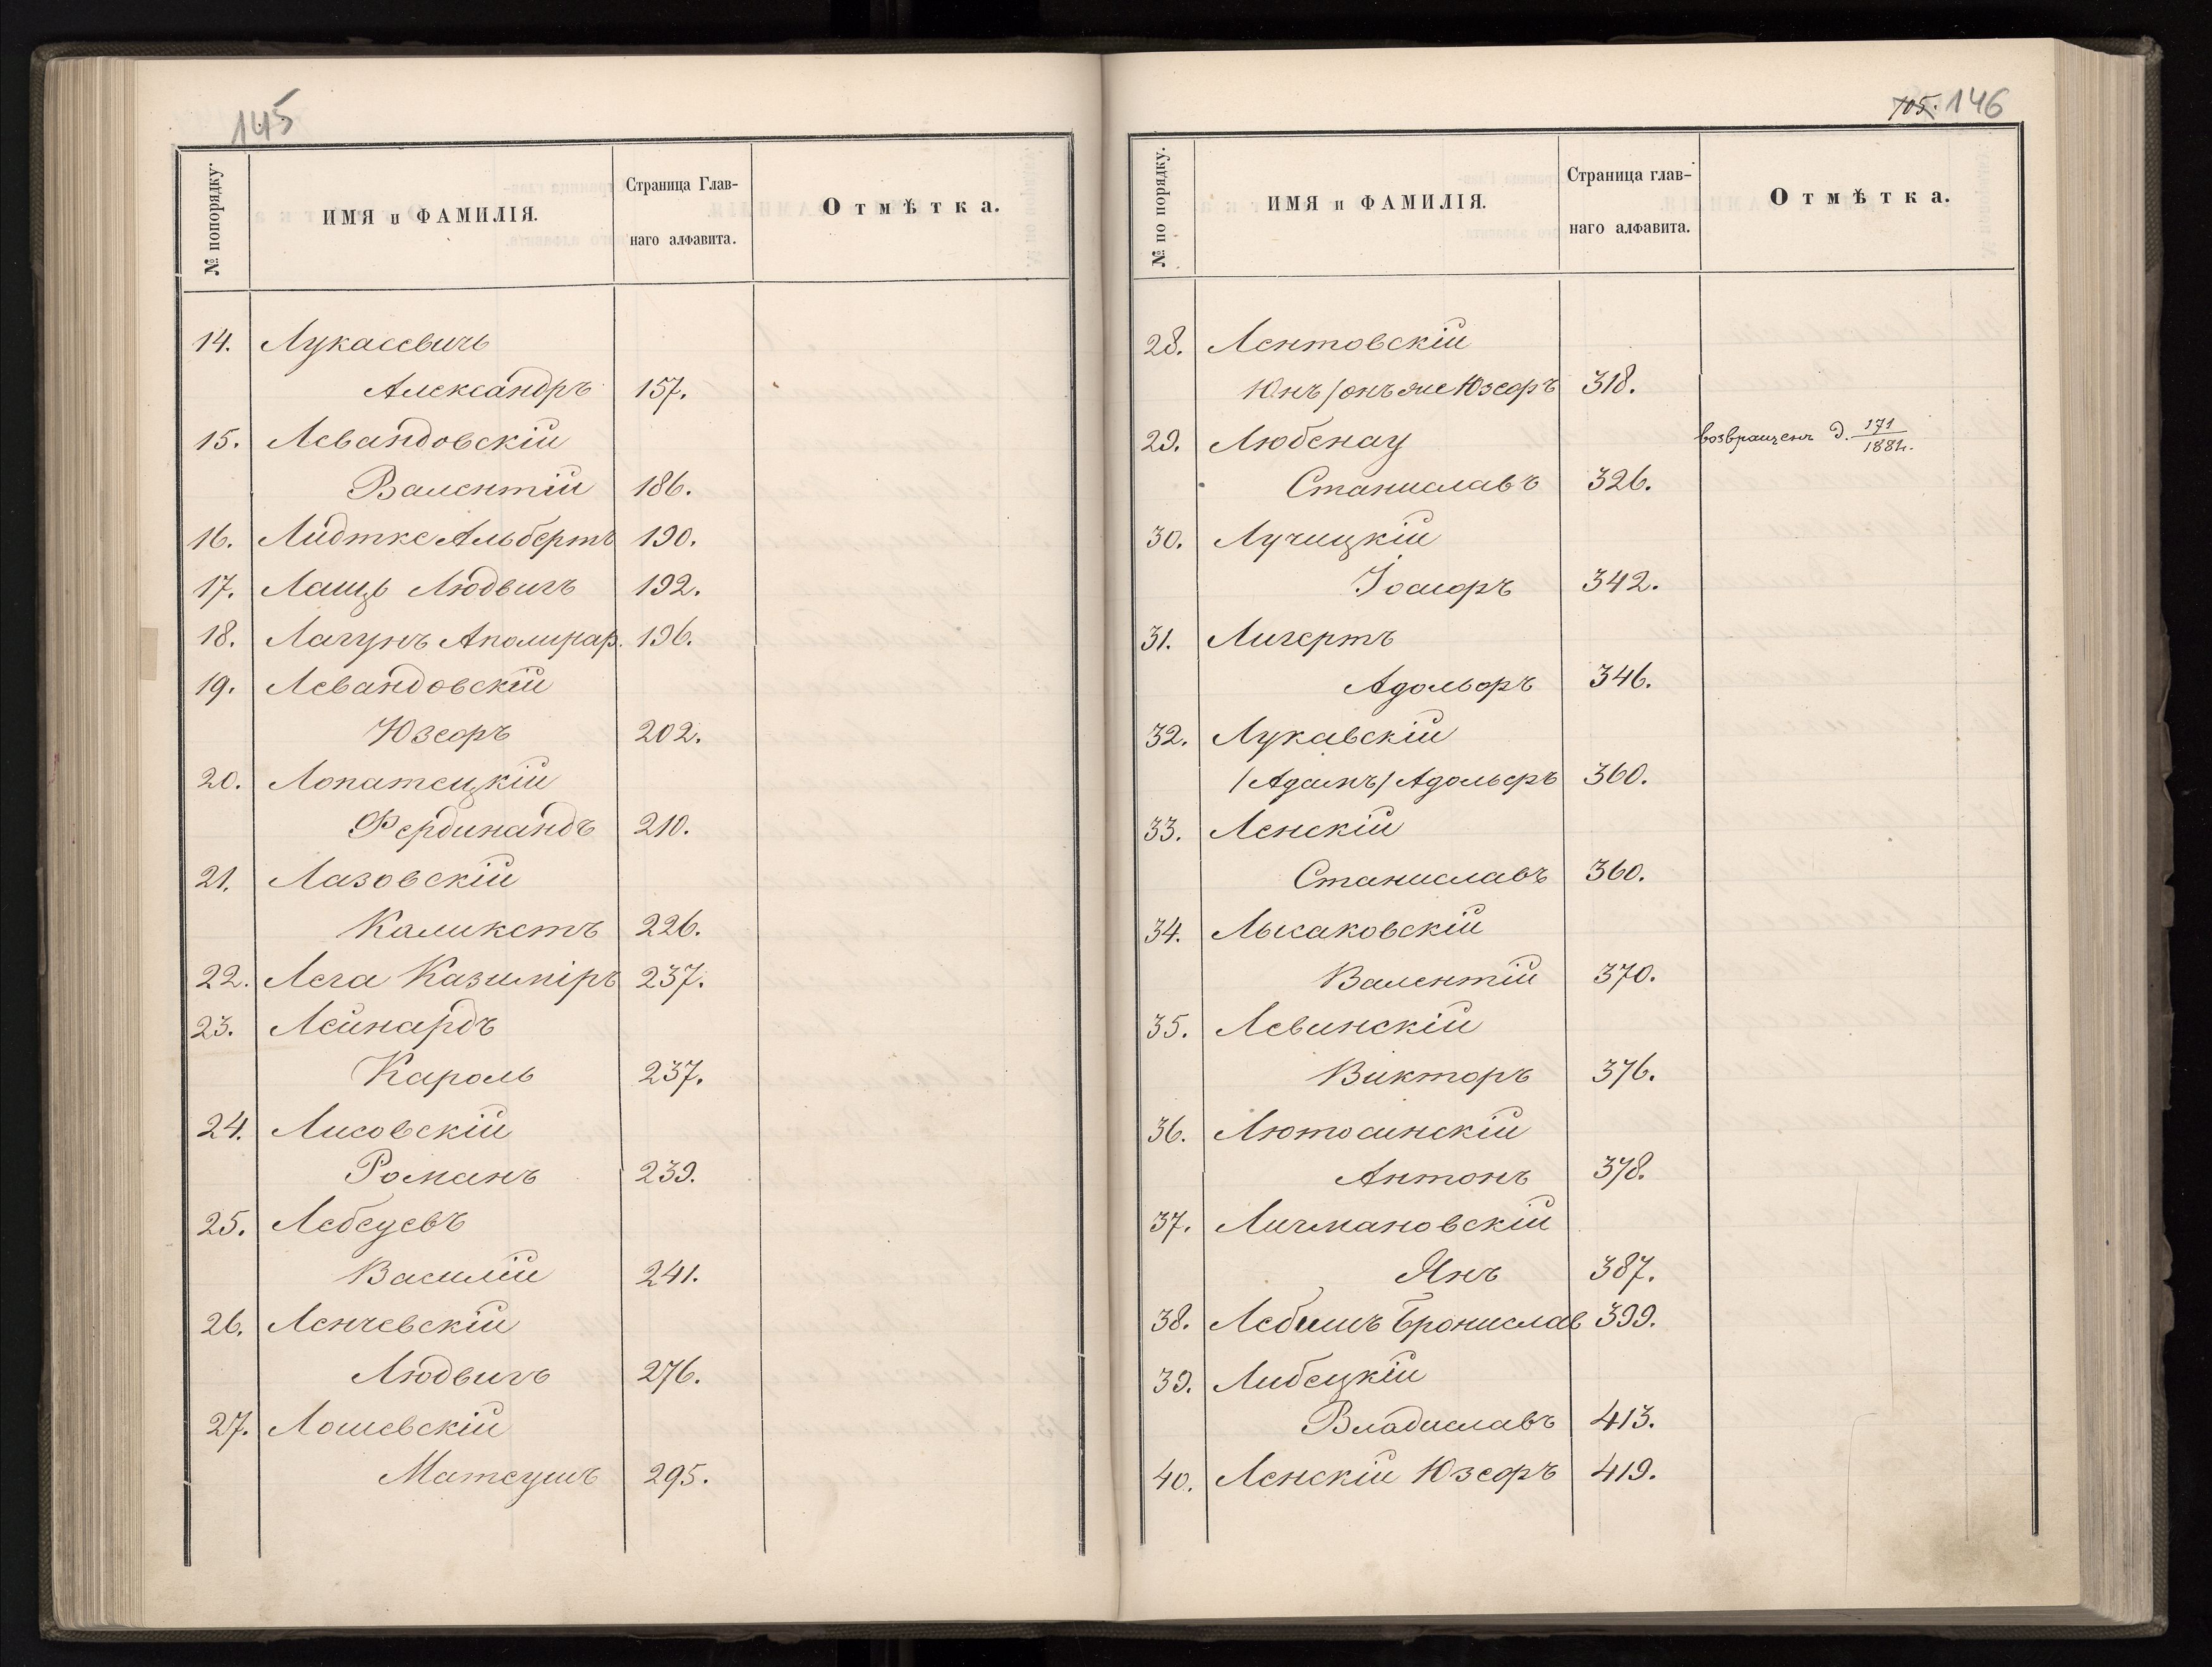 145
№ попорядку.
ИМЯ и ФАМИЛІЯ.
Страница Глав-
наго алфавита.
Отмѣтка.
14. Лукасевичъ
Александръ 157.
15. Левандовскій
Валентій 186.
16. Лидтке Альбертъ 190.
17. Лащъ Людвигъ 192.
18. Лагунъ Аполинар. 196.
19. Левандовскій
Юзефъ 202.
20. Лопатецкій
Фердинандъ 210.
21. Лазовскій
Каликстъ 226.
22. Лега Казиміръ 237.
23. Лейнардъ
Кароль 237.
24. Лисовскій
Романъ 239.
25. Лебедевъ
Василій 241.
26. Ленчевскій
Людвигъ 276.
27. Лошевскій
Матеушъ 295.
105. 146
№ по порядку.
ИМЯ и ФАМИЛІЯ.
Страница глав-
наго алфавита.
Отмѣтка.
28. Лентовскій
/онъ же Юзефъ 318.
29. Любенау возвращенъ д. 171/1884.
Станиславъ 326.
30. Лучицкій
Іосифъ 342.
31. Лигертъ
Адольфъ 346.
32. Лукавскій
/Адамъ/ Адольфъ 360.
33. Ленскій
Станиславъ 360.
34. Лысаковскій
Валентій 370.
35. Левинскій
Викторъ 376.
36. Лютосинскій
Антонъ 378.
37. Личмановскій
Янъ 387.
38. Лебишъ Бронислав 399.
39. Либецкій
Владиславъ 413.
40. Ленскій Юзефъ 419.